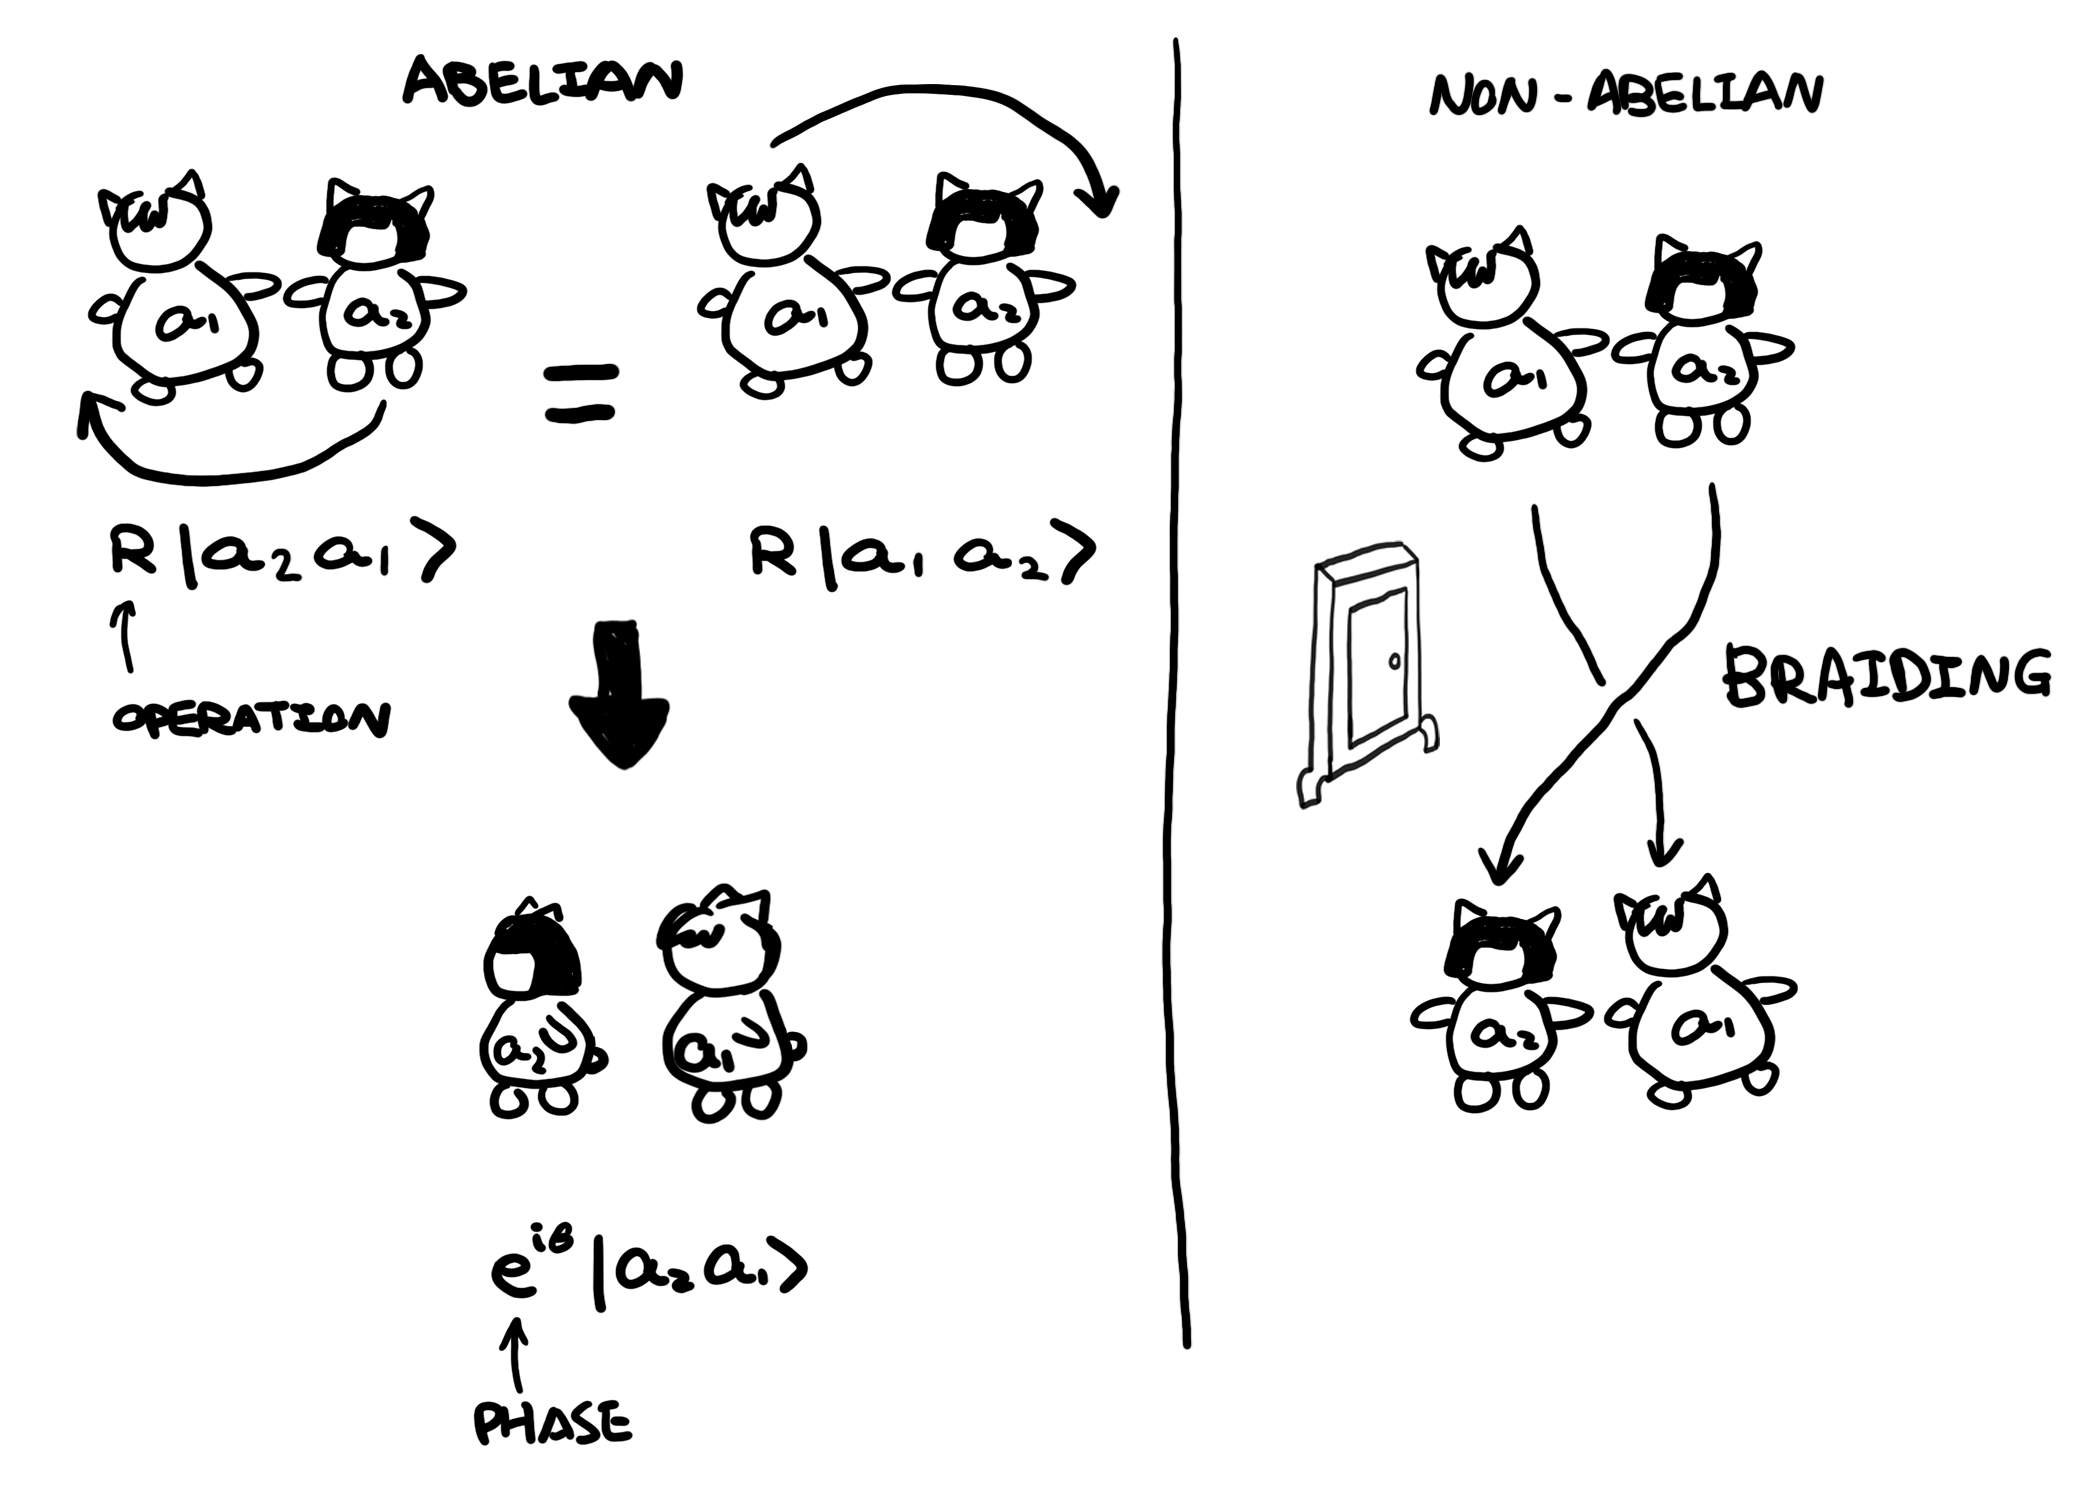 ABELIAN
a₁ a₂
=
a₁ a₂
R|a₂ a₁⟩
R|a₁ a₂⟩
↑
OPERATION
a₂ a₁
e^{iθ}|a₂ a₁⟩
↑
PHASE
NON-ABELIAN
a₁ a₂
BRAIDING
a₂ a₁